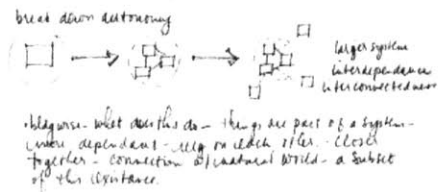 break down autonomy
larger system
interdependance
interconnectedness
what does this do - things are part of a system -
more dependant - rely on each other. closer
together - connection w/ natural world - a subset
of this existance.